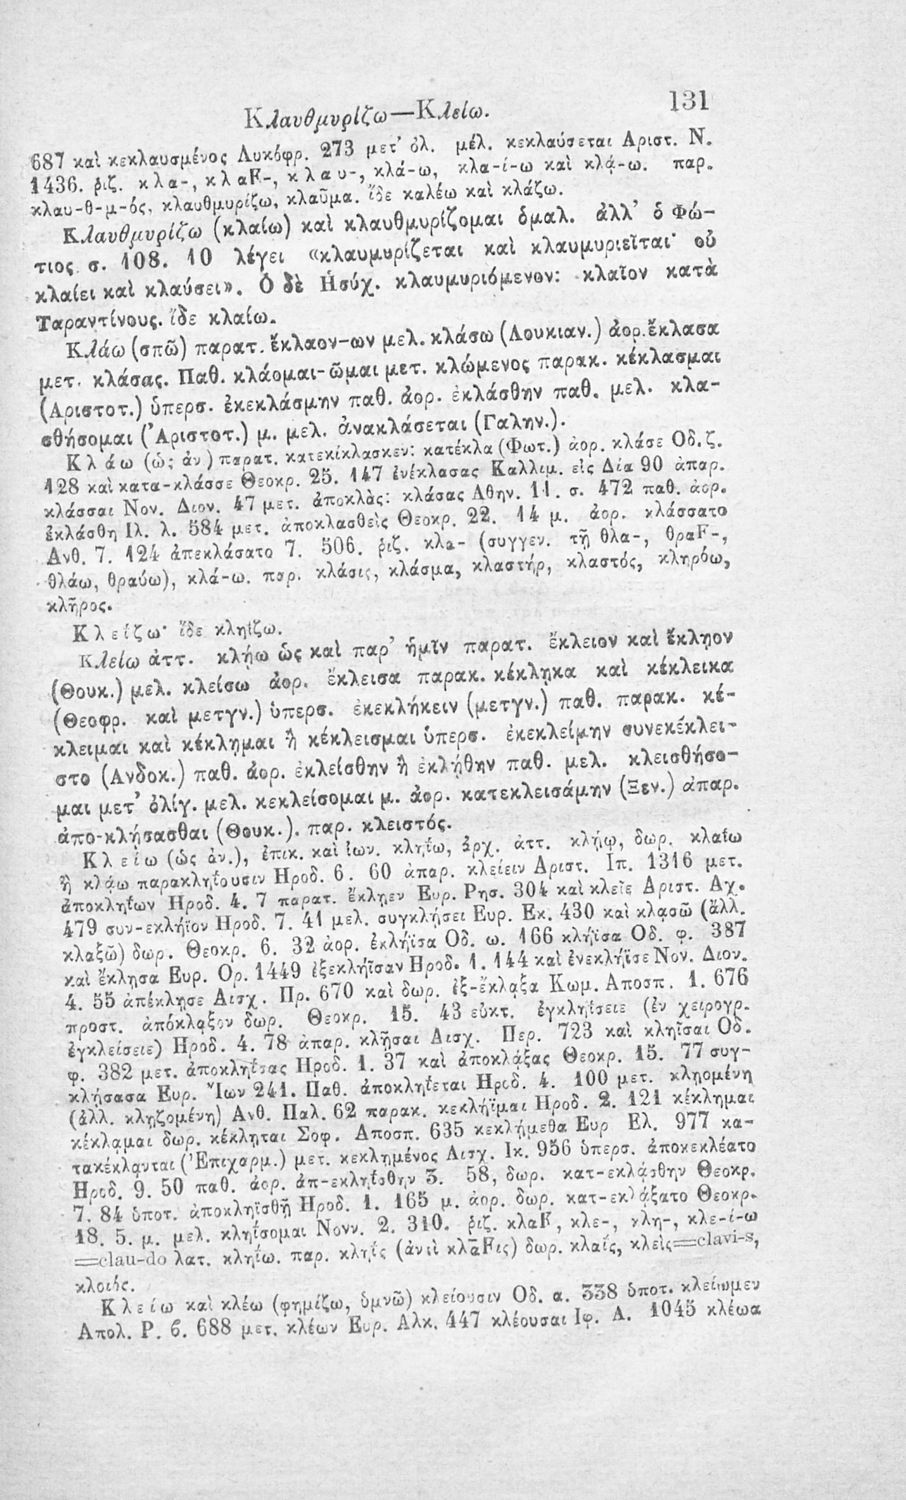 Κλαυθμυρίζω—Κλείω. 131
687 καὶ κεκλαυσμένος Λυκόφρ. 273 μετ' ὀλ. μέλ. κεκλαύσεται Αριστ. Ν.
1436. ῥιζ. κλα-, κλαF-, κλαυ-, κλά-ω, κλα-ί-ω καὶ κλᾴ-ω. παρ.
κλαυ-θ-μ-ός, κλαυθμυρίζω, κλαῦμα. ἴδε καλέω καὶ κλάζω.
Κλαυθμυρίζω (κλαίω) καὶ κλαυθμυρίζομαι ὁμαλ. ἀλλ' ὁ Φώ-
τιος σ. 108. 10 λέγει «κλαυμυρίζεται καὶ κλαυμυριεῖται· οὐ
κλαίει καὶ κλαύσει». Ὁ δὲ Ἡσύχ. κλαυμυριόμενον: κλαῖον κατὰ
Ταραντίνους. ἴδε κλαίω.
Κλάω (σπῶ) παρατ. ἔκλαον-ων μελ. κλάσω (Λουκιαν.) ἀορ. ἔκλασα
μετ. κλάσας. Παθ. κλάομαι-ῶμαι μετ. κλώμενος παρακ. κέκλασμαι
(Αριστοτ.) ὑπερσ. ἐκεκλάσμην παθ. ἀορ. ἐκλάσθην παθ. μελ. κλα-
σθήσομαι (Ἀριστοτ.) μ. μελ. ἀνακλάσεται (Γαλην.).
Κλάω (ὡς ἀν) παρατ. κατεκίκλασκεν: κατέκλα (Φωτ.) ἀορ. κλάσε Οδ. ζ.
128 καὶ κατα-κλάσσε Θεοκρ. 25. 147 ἐνίκλασας Καλλιμ. εἰς Δία 90 ἀπαρ.
κλάσσαι Νον. Διον. 47 μετ. ἀποκλὰς: κλάσας Αθην. 11. σ. 472 παθ. ἀορ.
ἐκλάσθη Ιλ. λ. 584 μετ. ἀποκλασθεὶς Θεοκρ. 22. 14 μ. ἀορ. κλάσσατο
Ανθ. 7. 124 ἀπεκλάσατο 7. 506. ῥιζ. κλα- (συγγεν. τῇ θλα-, θραF-,
θλάω, θραύω), κλά-ω. παρ. κλάσις, κλάσμα, κλαστήρ, κλαστός, κληρόω,
κλῆρος.
Κλείζω· ἴδε κληΐζω.
Κλείω ἀττ. κλῄω ὡς καὶ παρ' ἡμῖν παρατ. ἔκλειον καὶ ἔκλῃον
(Θουκ.) μελ. κλείσω ἀορ. ἔκλεισα παρακ. κέκληκα καὶ κέκλεικα
(Θεοφρ. καὶ μετγν.) ὑπερσ. ἐκεκλήκειν (μετγν.) παθ. παρακ. κέ-
κλειμαι καὶ κέκλημαι ἢ κέκλεισμαι ὑπερσ. ἐκεκλείμην συνεκέκλει-
στο (Ανδοκ.) παθ. ἀορ. ἐκλείσθην ἢ ἐκλῄθην παθ. μελ. κλεισθήσο-
μαι μετ' ὀλίγ. μελ. κεκλείσομαι μ. ἀορ. κατεκλεισάμην (Ξεν.) ἀπαρ.
ἀπο-κλῄσασθαι (Θουκ.). παρ. κλειστός.
Κλείω (ὡς ἀν.), ἐπικ. καὶ ἰων. κληΐω, ἀρχ. ἀττ. κλῄω, δωρ. κλαΐω
ἢ κλᾴω παρακληΐουσιν Ηροδ. 6. 60 ἀπαρ. κλείειν Αριστ. Ιπ. 1316 μετ.
ἀποκληΐων Ηροδ. 4. 7 παρατ. ἔκλῃεν Ευρ. Ρησ. 304 καὶ κλεῖε Αριστ. Αχ.
479 συν-εκλήϊον Ηροδ. 7. 41 μελ. συγκλῄσει Ευρ. Εκ. 430 καὶ κλασῶ (ἄλλ.
κλαξῶ) δωρ. Θεοκρ. 6. 32 ἀορ. ἐκλήϊσα Οδ. ω. 166 κλήϊσα Οδ. φ. 387
καὶ ἔκλῃσα Ευρ. Ορ. 1449 ἐξεκλήϊσαν Ηροδ. 1. 144 καὶ ἐνεκλήϊσε Νον. Διον.
4. 55 ἀπέκλῃσε Αισχ. Πρ. 670 καὶ δωρ. ἐξ-έκλᾳξα Κωμ. Αποσπ. 1. 676
προστ. ἀπόκλᾳξον δωρ. Θεοκρ. 15. 43 εὐκτ. ἐγκληΐσειε (ἐν χειρογρ.
ἐγκλείσειε) Ηροδ. 4. 78 ἀπαρ. κλῇσαι Αισχ. Περ. 723 καὶ κληῖσαι Οδ.
φ. 382 μετ. ἀποκληΐσας Ηροδ. 1. 37 καὶ ἀποκλᾴξας Θεοκρ. 15. 77 συγ-
κλῄσασα Ευρ. Ἴων 241. Παθ. ἀποκληΐεται Ηροδ. 4. 100 μετ. κλῃομένη
(ἀλλ. κλῃζομένη) Ανθ. Παλ. 62 παρακ. κεκλήϊμαι Ηροδ. 2. 121 κέκλημαι
κέκλᾳμαι δωρ. κέκληται Σοφ. Αποσπ. 635 κεκλήμεθα Ευρ Ελ. 977 κα-
τακέκλανται (Ἐπιχαρμ.) μετ. κεκλημένος Αισχ. Ικ. 956 ὑπερσ. ἀποκεκλέατο
Ηροδ. 9. 50 παθ. ἀορ. ἀπ-εκληΐσθην 3. 58, δωρ. κατ-εκλᾴσθην Θεοκρ.
7. 84 ὑποτ. ἀποκληϊσθῇ Ηροδ. 1. 165 μ. ἀορ. δωρ. κατ-εκλᾴξατο Θεοκρ.
18. 5. μ. μελ. κληΐσομαι Νονν. 2. 310. ῥιζ. κλαF, κλε-, κλη-, κλε-ί-ω
=clau-do λατ. κληΐω. παρ. κληΐς (ἀντὶ κλᾶFις) δωρ. κλαΐς, κλεὶς=clavi-s,
κλοιός.
Κλείω καὶ κλέω (φημίζω, ὑμνῶ) κλείουσιν Οδ. α. 338 ὑποτ. κλείωμεν
Απολ. Ρ. 6. 688 μετ. κλέων Ευρ. Αλκ. 447 κλέουσαι Ιφ. Α. 1045 κλέωα